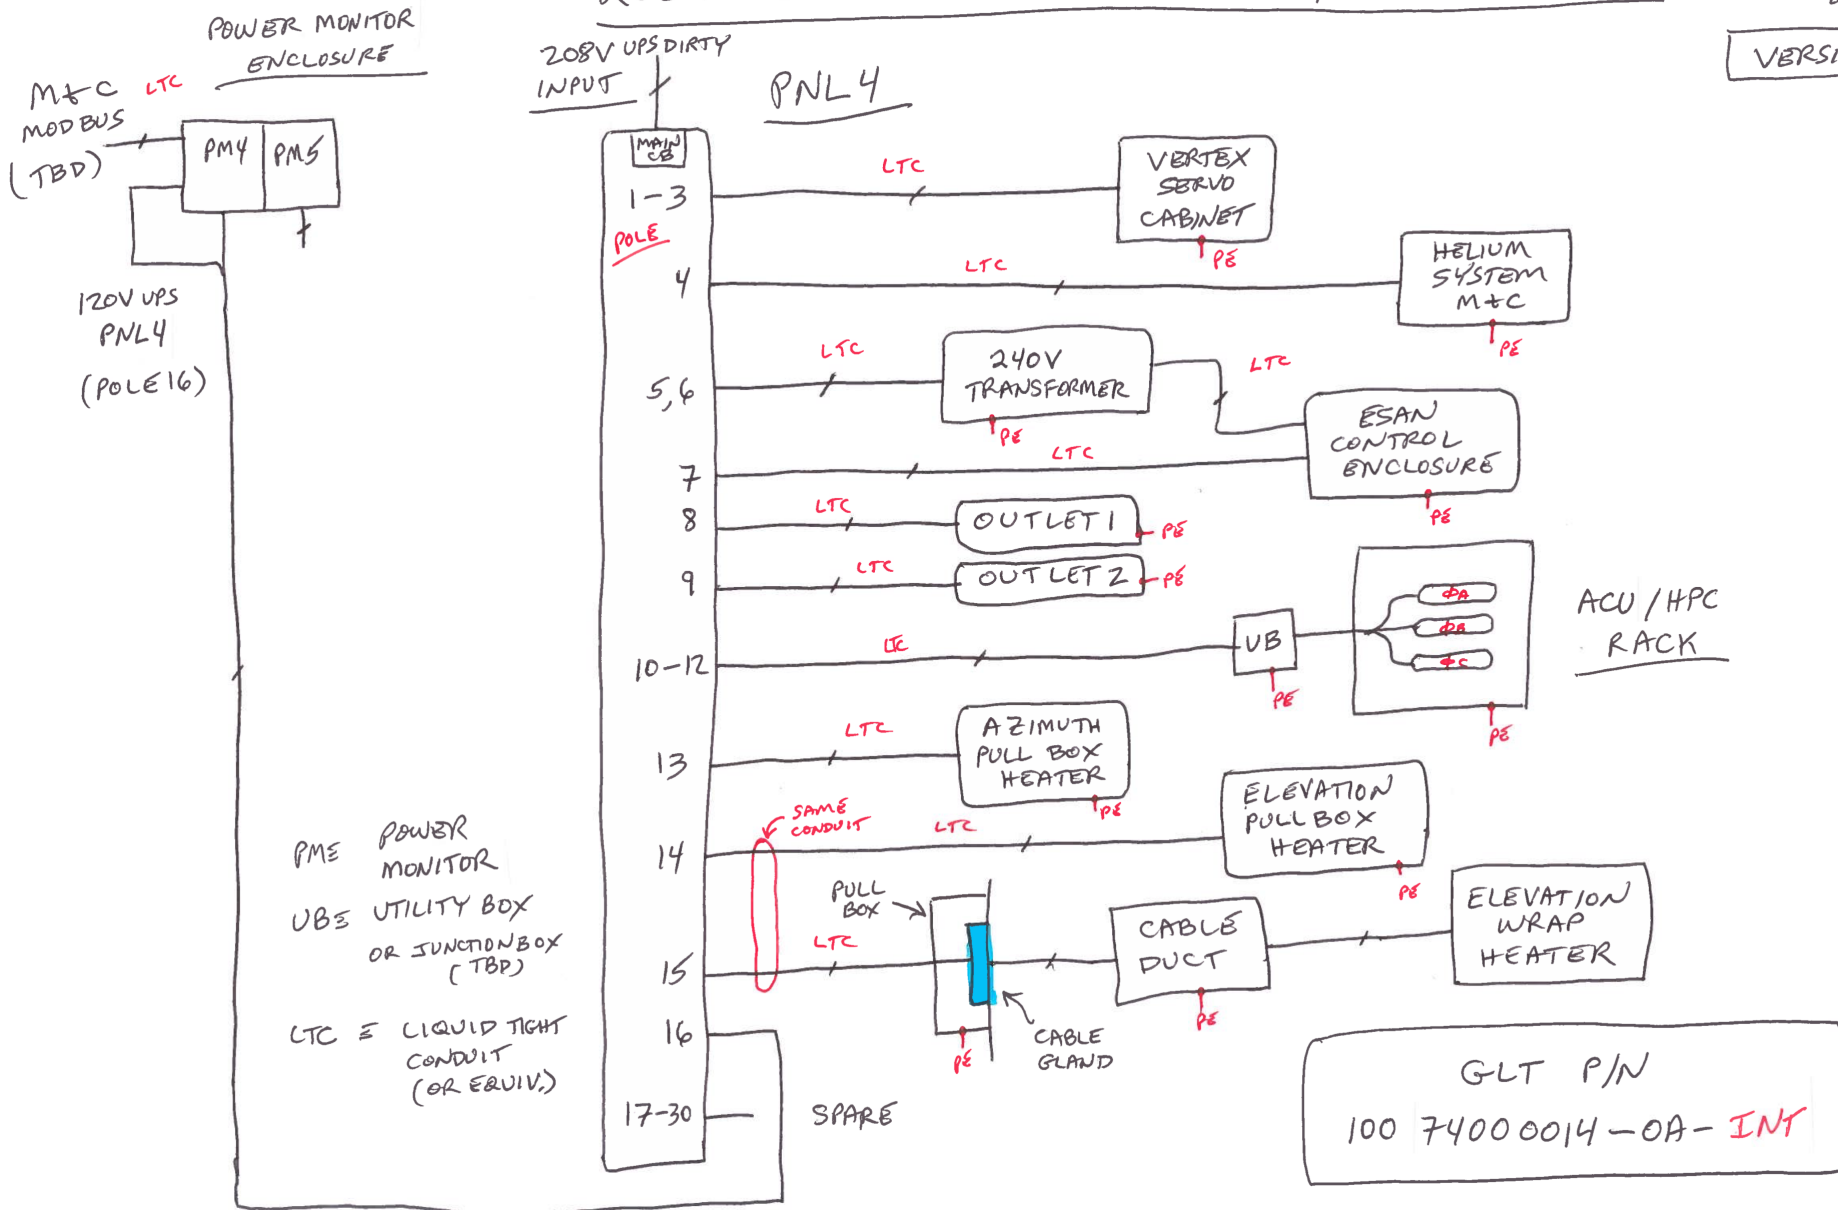 POWER MONITOR
ENCLOSURE
M&C LTC
MODBUS
(TBD)
PM4
PM5
120V UPS
PNL4
(POLE 16)
208V UPS DIRTY
INPUT
PNL4
MAIN
CB
1-3
POLE
4
5,6
7
8
9
10-12
13
14
15
16
17-30
SPARE
LTC
VERTEX
SERVO
CABINET
PE
LTC
HELIUM
SYSTEM
M&C
PE
LTC
240V
TRANSFORMER
PE
LTC
LTC
ESAN
CONTROL
ENCLOSURE
PE
LTC
OUTLET 1
PE
LTC
OUTLET 2
PE
LTC
UB
PE
ΦA
ΦB
ΦC
PE
ACU/HPC
RACK
LTC
AZIMUTH
PULL BOX
HEATER
PE
SAME
CONDUIT
LTC
ELEVATION
PULL BOX
HEATER
PE
PULL
BOX
LTC
PE
CABLE
GLAND
CABLE
DUCT
PE
ELEVATION
WRAP
HEATER
PM≡ POWER
MONITOR
UB≡ UTILITY BOX
OR JUNCTION BOX
(TBD)
LTC ≡ LIQUID TIGHT
CONDUIT
(OR EQUIV.)
GLT P/N
100 74000014-0A-INT